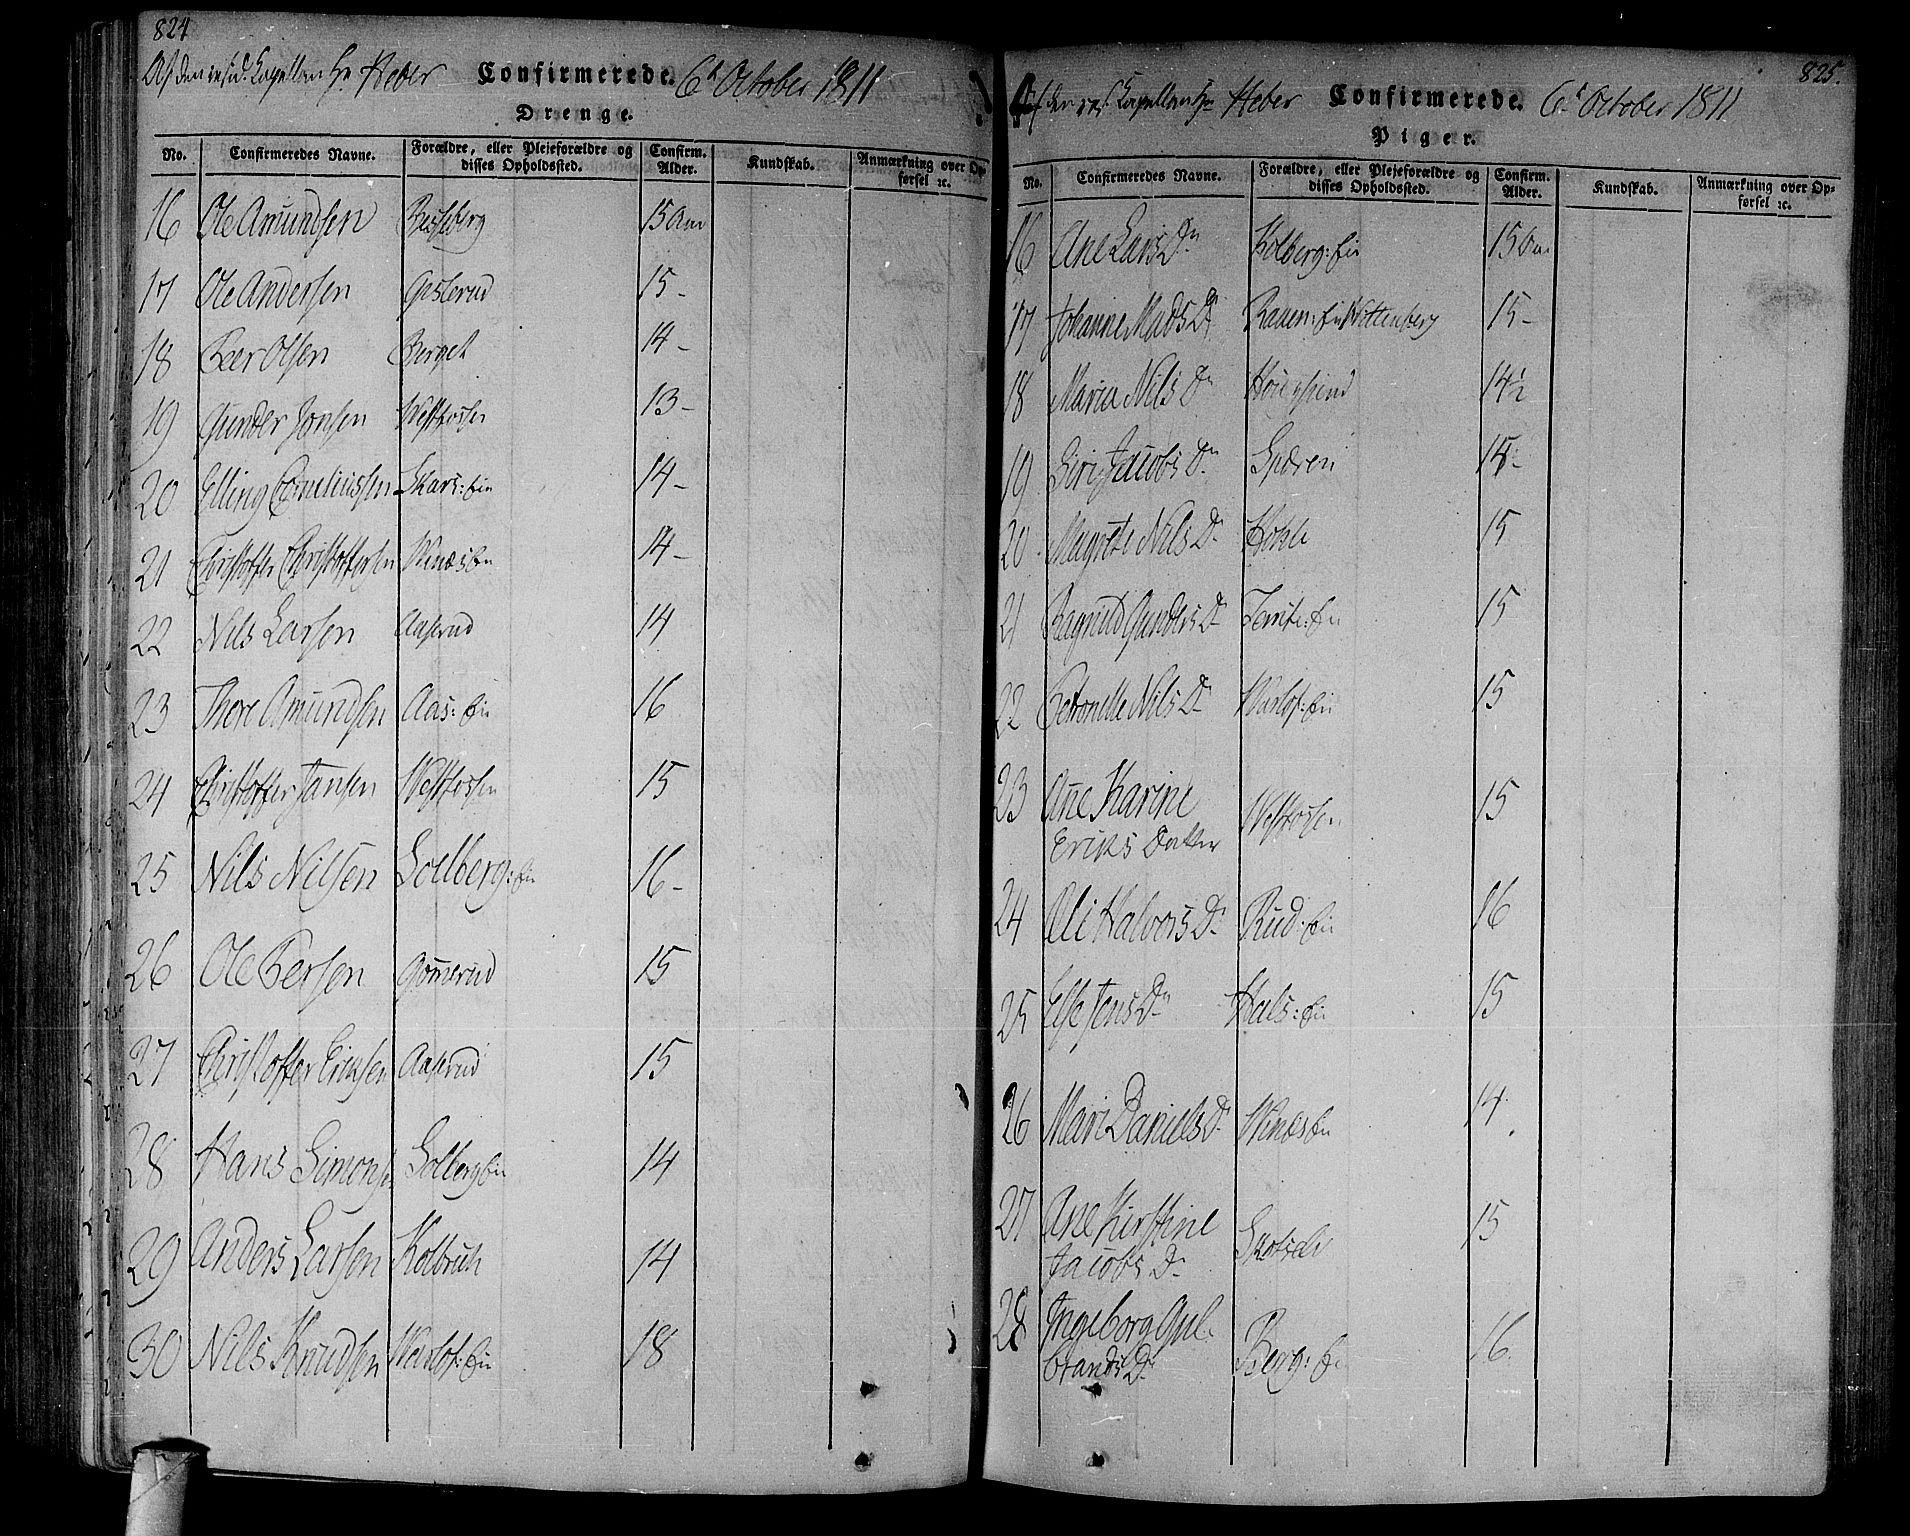 824
Af den resid. Kapellan Hr Heber Confirmerede. 6t October 1811
Drenge.
No. Confirmeredes Navne. Forældre, eller Plejeforældre og disses Opholdssted. Confirm. Alder. Kundskab. Anmærkning over Opførsel ꝛc.
16 Ole Amundsen 15 Aar
17 Ole Andersen Gesterud 15 -
18 Peer Olsen Berget 14 -
19 Gunder Jonsen Westfossen 13 -
20 Elling Corneliussen Skars: Eie 14 -
21 Christoffer Christoffersen Wenæs Eie 14 -
22 Nils Larsen Aaserud 14
23 Thore Amundsen Aas: Eie 16
24 Christoffer Jansen Westfossen 15
25 Nils Nilsen Soelberg: Eie 16 -
26 Ole Persen Gomerud 15
27 Christoffer Ericksen Aaserud 15
28 Hans Simonsen Solberg Eie 14
29 Anders Larsen Kolbruh 14
30 Nils Knudsen Warlof: Eie 18
825.
Af den res Kapellan Hr Heber Confirmerede. 6t October 1811
Piger.
No. Confirmeredes Navne. Forældre, eller Plejeforældre og disses Opholdssted. Confirm. Alder. Kundskab. Anmærkning over Opførsel ꝛc.
16 Ane Lars Dr Kolberg: Eie 15 Aar
17 Johanne Mads Dr Raaen: Eie Wittenberg 15 -
18 Maria Nils Dr Hougsund 14½
19 Siri Jacobs Dr Speren 15 -
20 Magrete Nils Dr Hohle 15
21 Ragnild Gunders Dr 15
22 Petronelle Nils Dr Warlof: Eie 15
23 Ane Karine
Eriks Datter Westfossen 15
24 Eli Halvors Dr Rud: Eie 16
25 Else Jens Dr Hals: Eie 15
26 Mari Daniels Dr Wenæs Eie 14.
27 Ane Kirstine
Jacobs Dr Skotselv 15
28 Ingeborg Gul-
brands Dr Berg: Eie 16